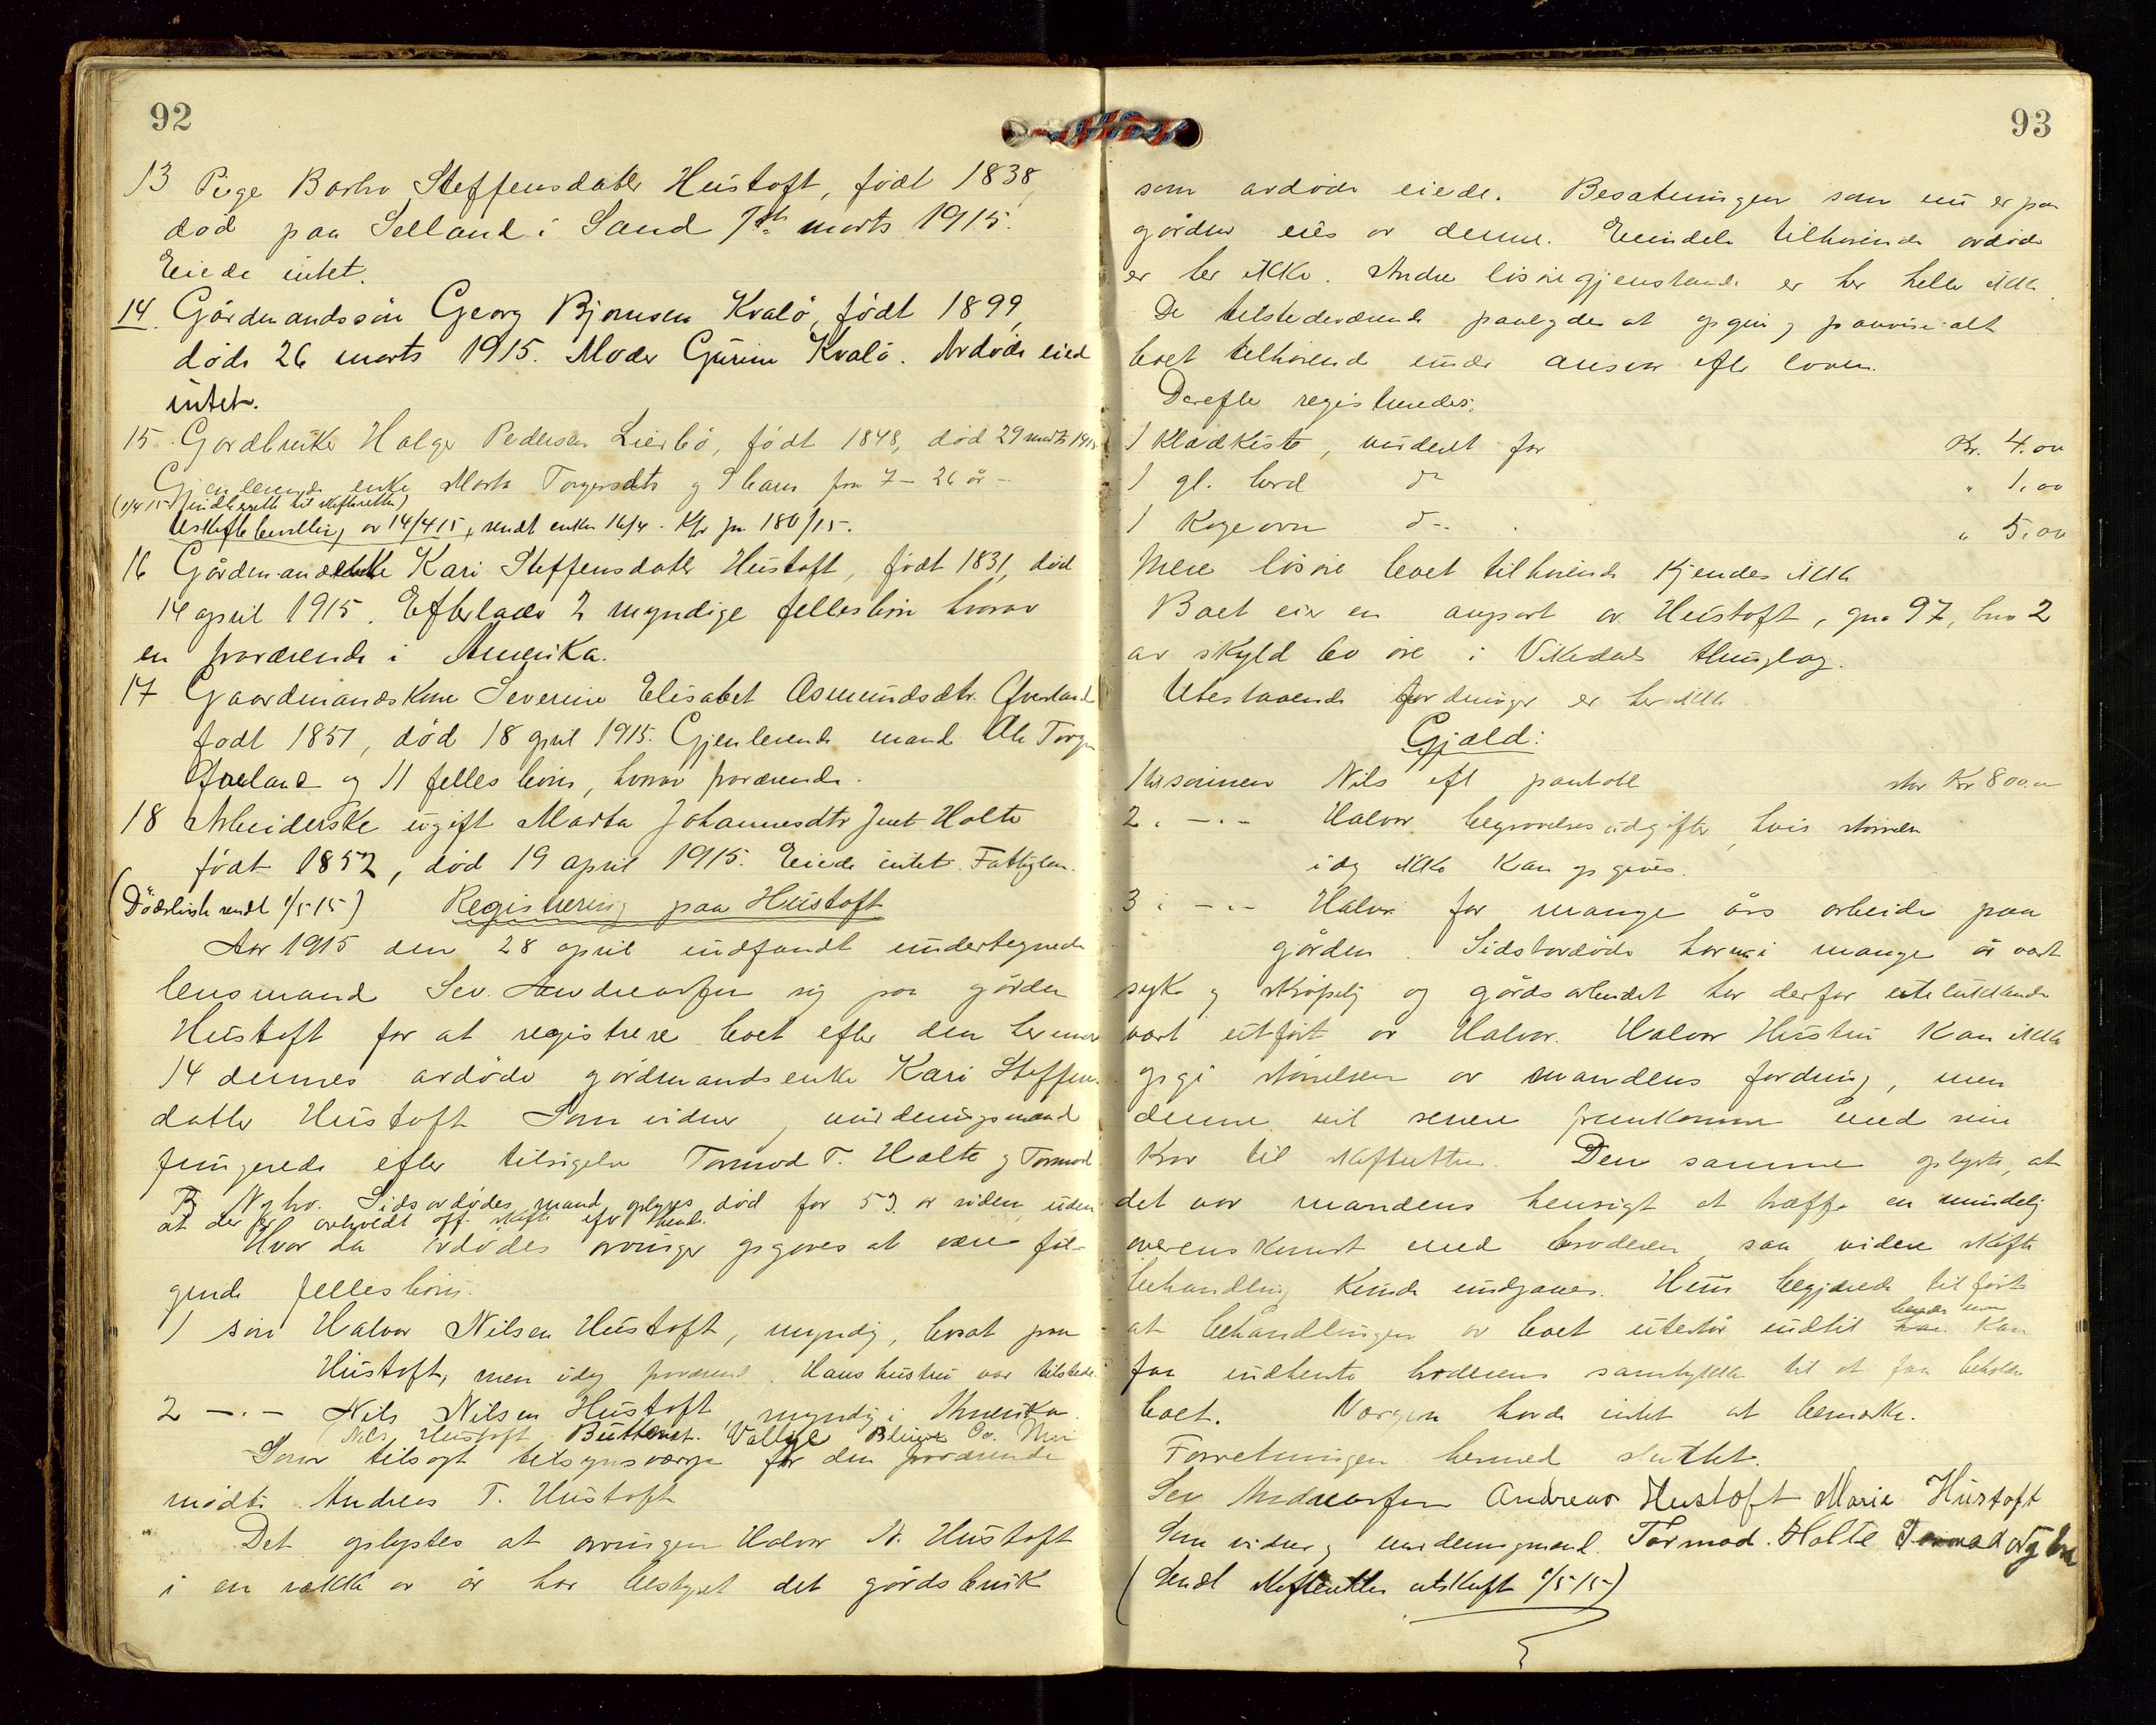 92
13 Pige Barbro Steffensdatter Hustoft, født 1838,
død paa Selland i Sand 7de marts 1915.
Eiede intet.
14. Gårdmandssøn Georg Bjørnsen Kvalø, født 1899,
døde 26 marts 1915. Moder Gurine Kvalø. Avdøde eied
intet.
15. Gardbruker Holger Pedersen Lierbø, født 1848, død 29 marts 1915
Gjenlevende enke Marta Torgersdtr og 9 barn fra 7 - 26 år -
(1/4 15 indberette til skifteretten)
Uskiftebevilling av 14/4 15, sendt enken 16/4. Kfr jn 180/15.
16 Gårdmandsenke Kari Steffensdatter Hustoft, født 1831, død
14 april 1915. Efterlader 2 myndige fellesbørn hvorav
en fraværende i Amerika.
17 Gaardmandskone Severine Elisabet Asmundsdtr.
født 1857, død 18 april 1915. Gjenlevende mand Ole
og 11 felles børn, hvorav fraværende.
18 Arbeiderske ugift Marta Johannesdtr Holte
født 1852, død 19 april 1915. Eiede intet. Fattiglem.
(Dødsliste sendt 1/5 15) Registrering paa Hustoft
Aar 1915 den 28 april indfandt undertegnede
lensmand Sev. Andreassen sig paa gården
Hustoft for at registrere boet efter den
14 dennes avdøde gårdmandsenke Kari Steffens
datter Hustoft Som vidner, vurderingsmænd
fungerede efter tilsigelse Tormod T. Halte og Tormod
B Nybro. Sidsavdødes mand oplyses død for 53 år siden, uden
at der er avholdt off. skifte efter hende.
Hvor da avdødes arvinger opgaves at være føl-
gende fellesbørn:
1 søn Halvor Nilsen Hustoft, myndig, bosat paa
Hustoft, men idag fraværend. Hans hustru var tilstede.
2 -.- Nils Nilsen Hustoft myndig i Amerika.
Nils Hustoft Valley
Som tilsagt tilsynsværge for den fraværende
mødte Andreas T. Hustoft
Det oplystes at arvingen Halvor N. Hustoft
i en rækk av år har bestyret det gårdsbruk
93
som avdøde eiede. Besætningen som nu er paa
gården eies av denne. Eiendele tilhørende avdøde
er her ikke. Andre løsøregjenstande er her heller ikke.
De tilstedeværende paalydes at opgive og paavise alt
boet tilhørend under ansvar efter loven.
Derefter registreredes:
1 klædkiste, vurderet for Kr. 4.00
1 gl. bord do " 1.00
1 kogeovn do " 5.00
Mere løsøre boet tilhørende kjendes ikke
Boet eier en anpart av Hustoft, gno 97, bno 2
av skyld øre i Vikedals thinglag.
Utestaaende fordringer er her ikke
Gjæld:
1 til sønnen Nils eft pantobl stor Kr 800.00
2. -.- Halvor begravelsesudgifter, hvis størrelse
idag ikke kan opgives.
3. -.- Halvor for mange års arbeide paa
gården. Sidstavdøde har nu i mange år vært
syk og skrøpelig og gårdsarbeidet har derfor utelukkende
vært utført av Halvor. Halvor Hustru kan ikke
opgi størrelsen av mandens fordring, men
denne vil senere fremkomme med sin
krav til skifteretten. Den samme oplyste, at
det var mandens hensigt at træffe en mindelig
overenskomst med broderen, saa videre skifte
behandling kunde undgaaes. Hun begjærede tilført
at behandlingen av boet utestår indtil hendes man kan
faa indhente broderens samtykke til at faa beholde
boet. Værgen havde intet at bemærke.
Forretningen hermed sluttet.
Sev Andreassen Andreas Hustoft Marie Hustoft
Som vidner og vurderingsmænd. Tormod. Halte Tormod Nybru
(Sendt skifteretten utskrift 1/5 15)